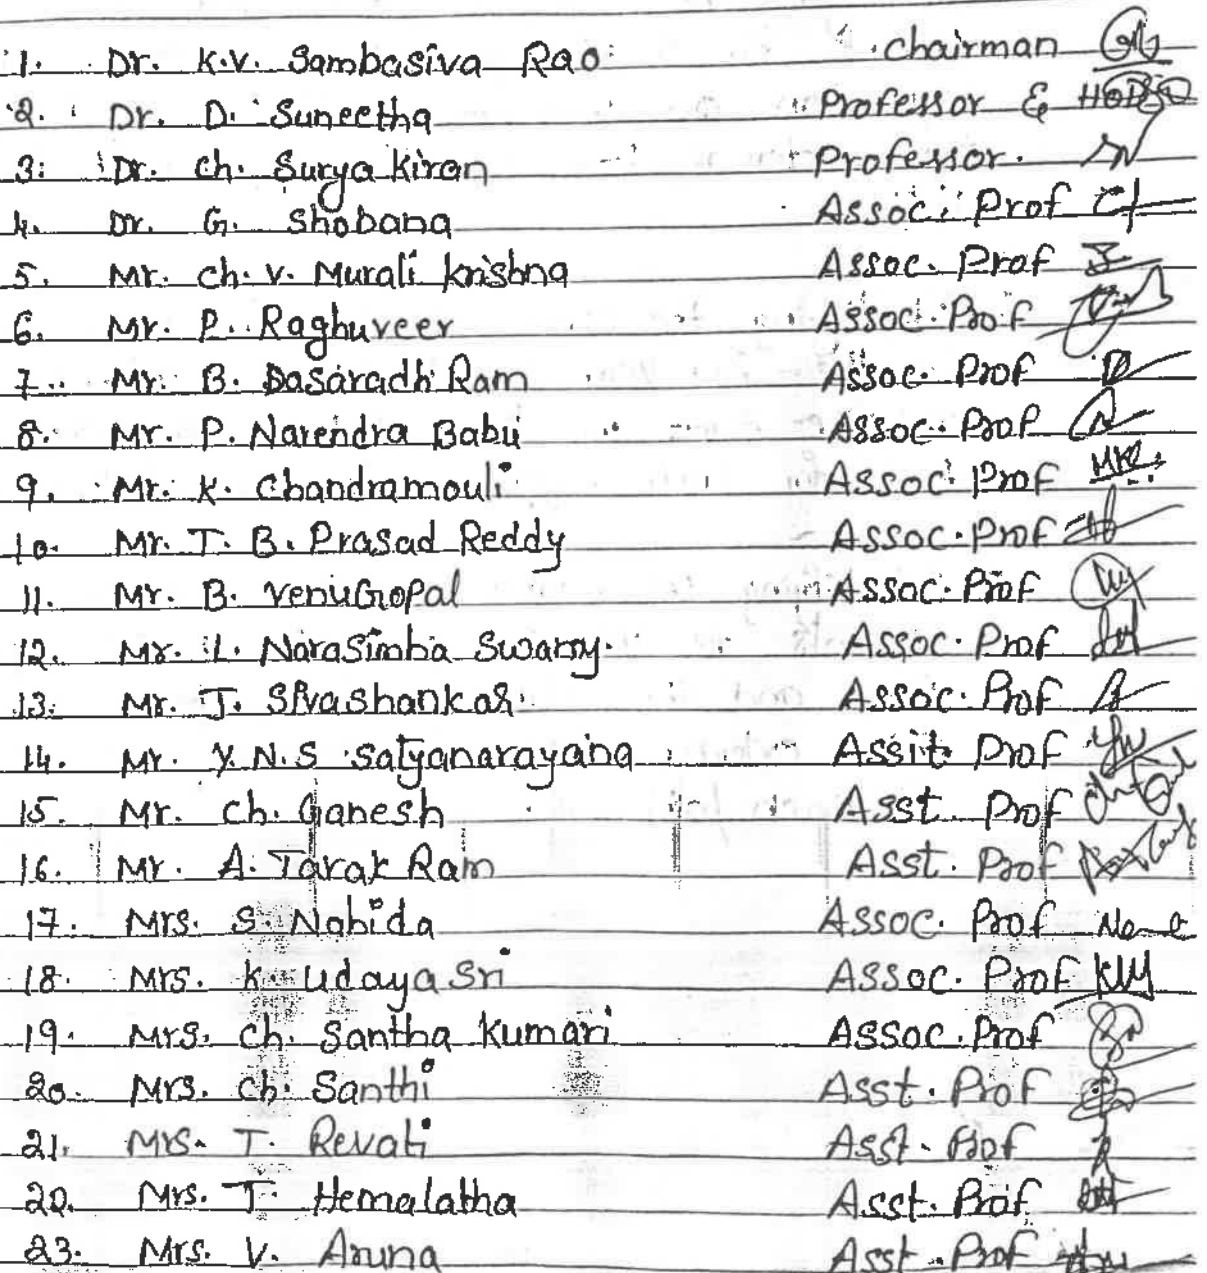 1. Dr. K.V. Sambasiva Rao Chairman
2. Dr. D. Suneetha Professor & HOD
3. Dr. Ch. Surya Kiran Professor.
4. Dr. G. Shobana Assoc. Prof
5. Mr. Ch. V. Murali Krishna Assoc. Prof
6. Mr. P. Raghuveer Assoc. Prof
7. Mr. B. Dasaradh Ram Assoc. Prof
8. Mr. P. Narendra Babu Assoc. Prof
9. Mr. K. Chandramouli Assoc. Prof
10. Mr. T. B. Prasad Reddy Assoc. Prof
11. Mr. B. VenuGopal Assoc. Prof
12. Mr. L. Narasimha Swamy. Assoc. Prof
13. Mr. J. Sivashankar. Assoc. Prof
14. Mr. Y.N.S Satyanarayana Assit. Prof
15. Mr. Ch. Ganesh Asst. Prof
16. Mr. A. Tarak Ram Asst. Prof
17. Mrs. S. Nahida Assoc. Prof
18. Mrs. K. Udaya Sri Assoc. Prof
19. Mrs. Ch. Santha Kumari Assoc. Prof
20. Mrs. Ch. Santhi Asst. Prof
21. Mrs. T. Revati Asst. Prof
22. Mrs. T. Hemalatha Asst. Prof
23. Mrs. V. Aruna Asst. Prof